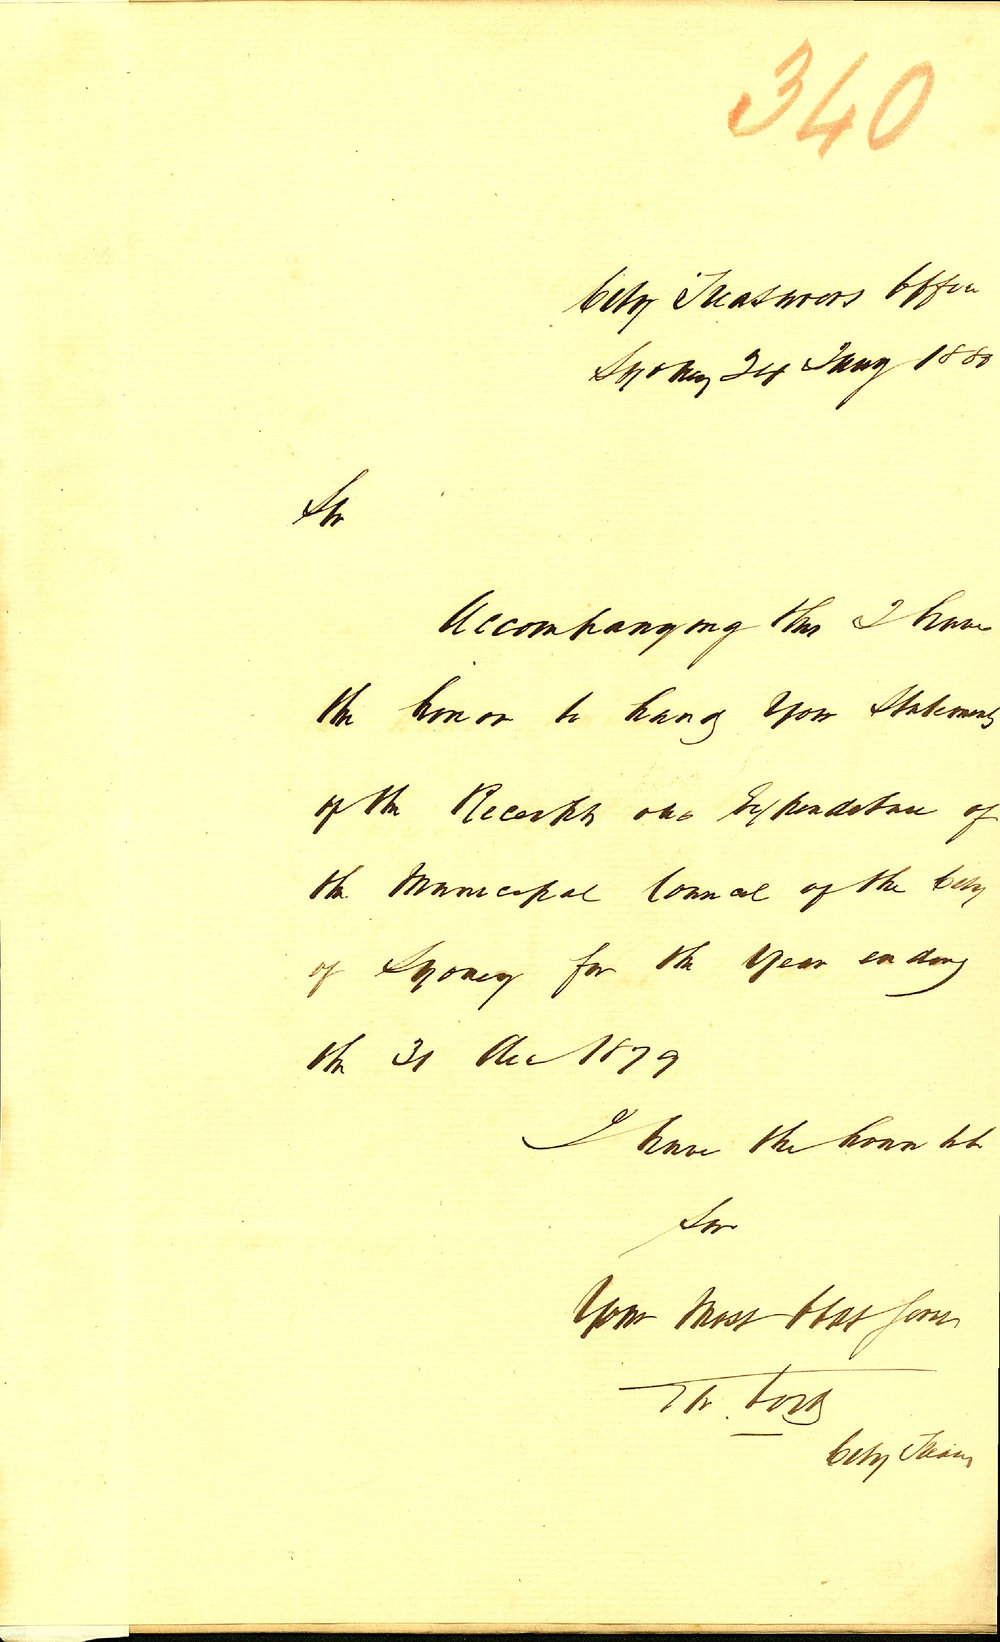 340
City Treasurers Office
Sydney 24 Jany 1880
Sir
Accompanying this I have
the honor to hand You Statements
of the Receipts and Expenditure of
the Municipal Council of the City
of Sydney for the Year ending
the 31 Dec 1879
I have the honor to be
Sir
Your Most Obdt Servt
City Treas